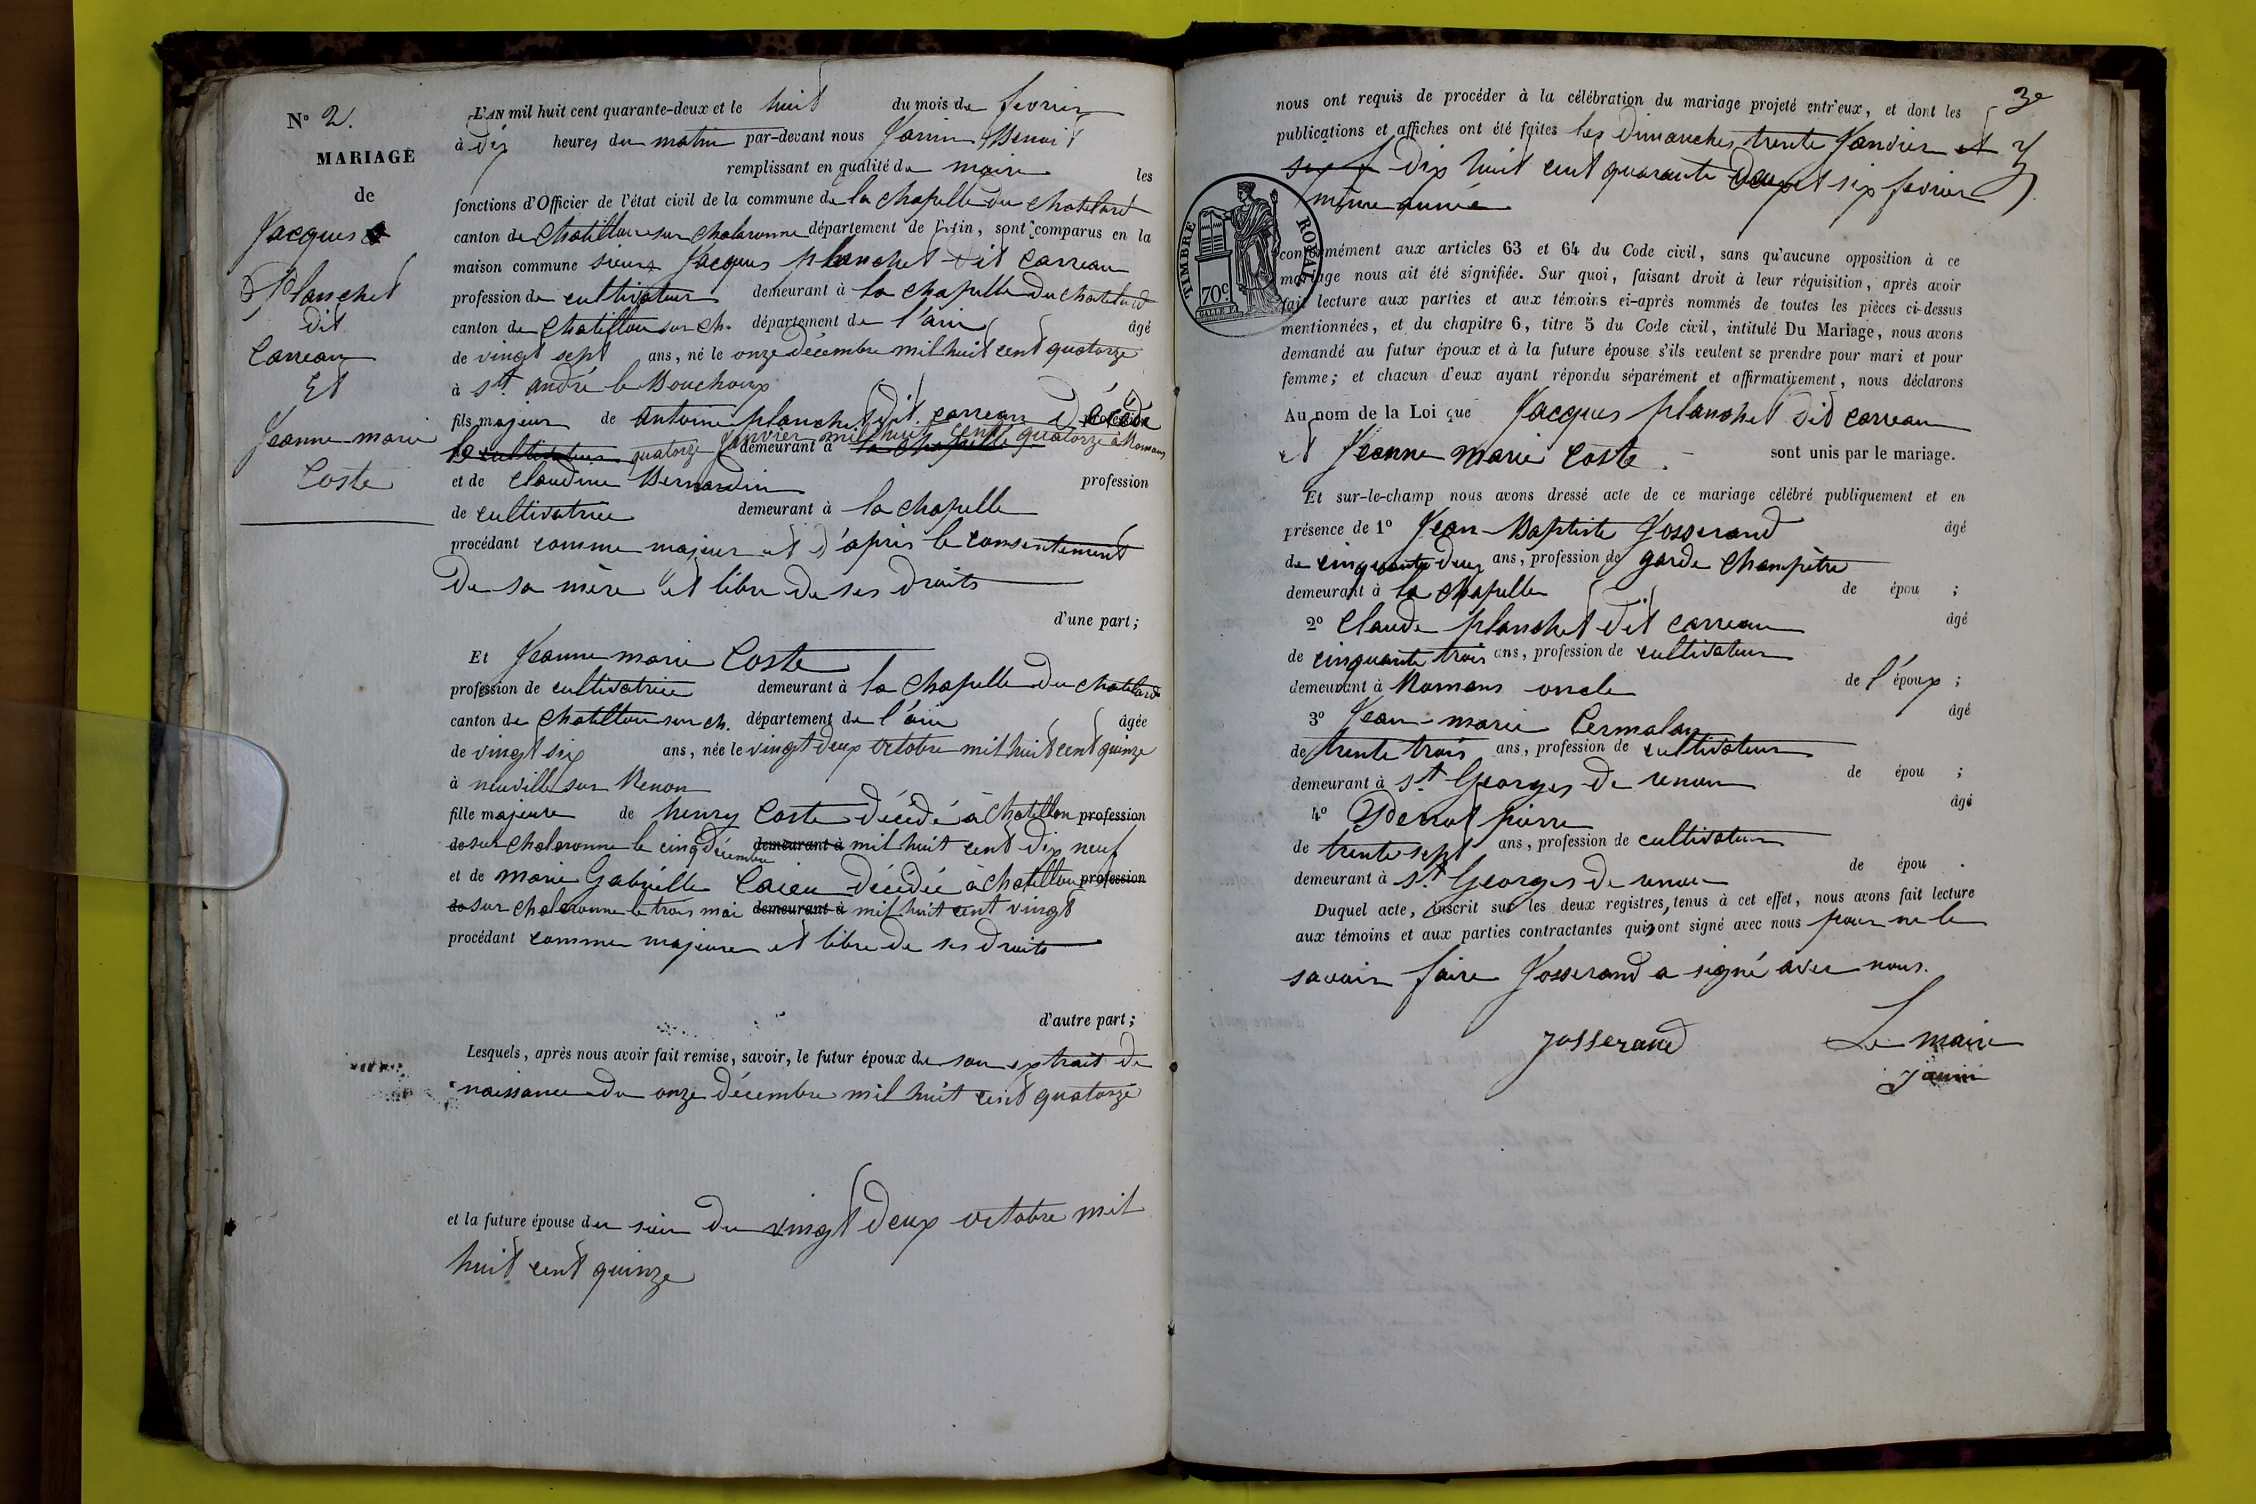 N° 2.
MARIAGE
de
Jacques
Planchet
dit
Carreau
Et
Jeanne marie
Coste
L'AN mil huit cent quarante-deux et le huit du mois de fevrier
à dix heures du matin par-devant nous Janin Benoit
remplissant en qualité de maire les
fonctions d'Officier de l'état civil de la commune de la chapelle du chatelard
canton de Chatillon sur chalaronne département de l'Ain, sont comparus en la
maison commune sieur Jacques planchet dit carreau
profession de cultivateur demeurant à la chapelle du chatelard
canton de Chatillon sur ch. département de l'ain âgé
de vingt sept ans, né le onze décembre mil huit cent quatorze
à st. andré le Bouchoux
fils majeur de antoine planchet dit carreau décédé profession
le cultivateur quatorze janvier mil huit cent quatorze à Romans demeurant à la chapelle
et de claudine Bernardin profession
de cultivatrice demeurant à la chapelle
procédant comme majeur et d'après le consentement
de sa mère et libre de ses droits
d'une part;
Et Jeanne marie Coste
profession de cultivatrice demeurant à la chapelle du chatelard
canton de chatillon sur ch. département de l'ain âgée
de vingt six ans, née le vingt deux octobre mil huit cent quinze
à neuville sur Renon
fille majeure de henry Coste décédé à chatillon profession
de sur chalaronne le cinq décembre demeurant à mil huit cent dix neuf
et de marie Gabrielle décédée a chatillon profession
de sur chalaronne le trois mai demeurant à mil huit cent vingt
procédant comme majeure et libre de ses droits
d'autre part;
Lesquels, après nous avoir fait remise, savoir, le futur époux de son extrait de
naissance du onze décembre mil huit cent quatorze
et la future épouse du sien du vingt deux octobre mil
huit cent quinze
3e
nous ont requis de procéder à la célébration du mariage projeté entr'eux, et dont les
publications et affiches ont été faites les dimanches trente Janvier et
six f dix huit cent quarante deux et six fevrier
même année
TIMBRE ROYAL
70c.
conformément aux articles 63 et 64 du Code civil, sans qu'aucune opposition à ce
mariage nous ait été signifiée. Sur quoi, faisant droit à leur réquisition, après avoir
fait lecture aux parties et aux témoins ci-après nommés de toutes les pièces ci-dessus
mentionnées, et du chapitre 6, titre 5 du Code civil, intitulé Du Mariage, nous avons
demandé au futur époux et à la future épouse s'ils veulent se prendre pour mari et pour
femme; et chacun d'eux ayant répondu séparément et affirmativement, nous déclarons
Au nom de la Loi que Jacques planchet dit carreau
et Jeanne marie Coste. sont unis par le mariage.
Et sur-le-champ nous avons dressé acte de ce mariage célébré publiquement et en
présence de 1° Jean-Baptiste Josserand âgé
de cinquante deux ans, profession de garde champêtre
demeurant à la chapelle de épou ;
2° Claude planchet dit carreau âgé
de cinquante trois ans, profession de cultivateur
demeurant à Romans oncle de l'époux ;
3° Jean-marie Cermalan âgé
de trente trois ans, profession de cultivateur
demeurant à st. Georges de renon de épou ;
4° pierre âgé
de trente sept ans, profession de cultivateur
demeurant à st. Georges de renon de épou .
Duquel acte, inscrit sur les deux registres, tenus à cet effet, nous avons fait lecture
aux témoins et aux parties contractantes qui ont signé avec nous pour ne le
savoir faire Josserand a signé avec nous.
Josserand Le maire
Janin